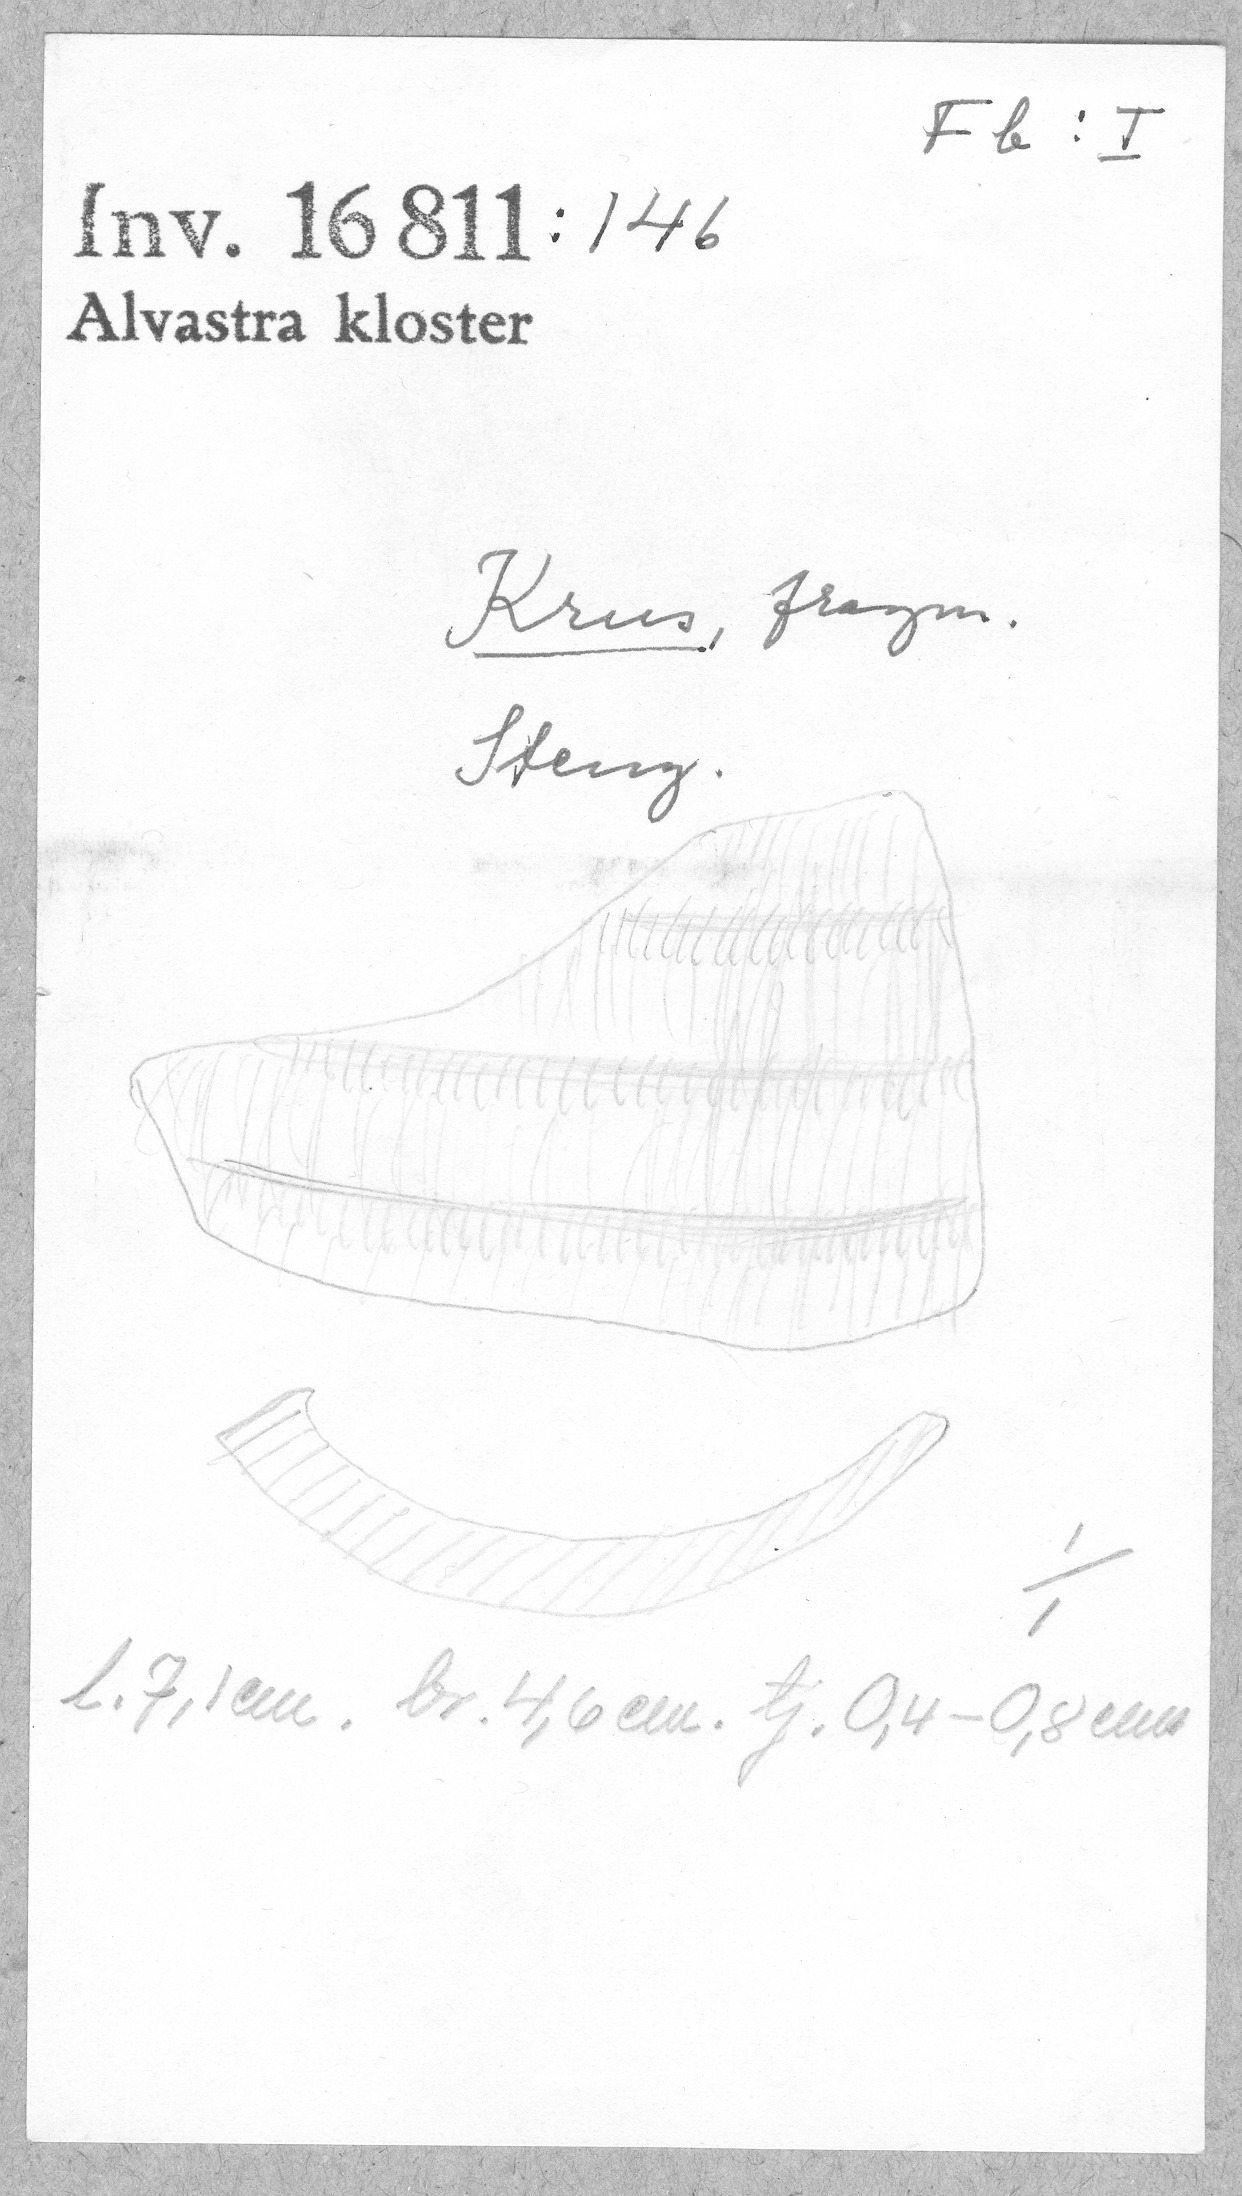 Fb : I
Inv. 16 811 : 146
Alvastra kloster
Krus, fragm.
Steng.
1/1
l. 7,1 cm. br. 4,6 cm. tj. 0,4–0,8 cm